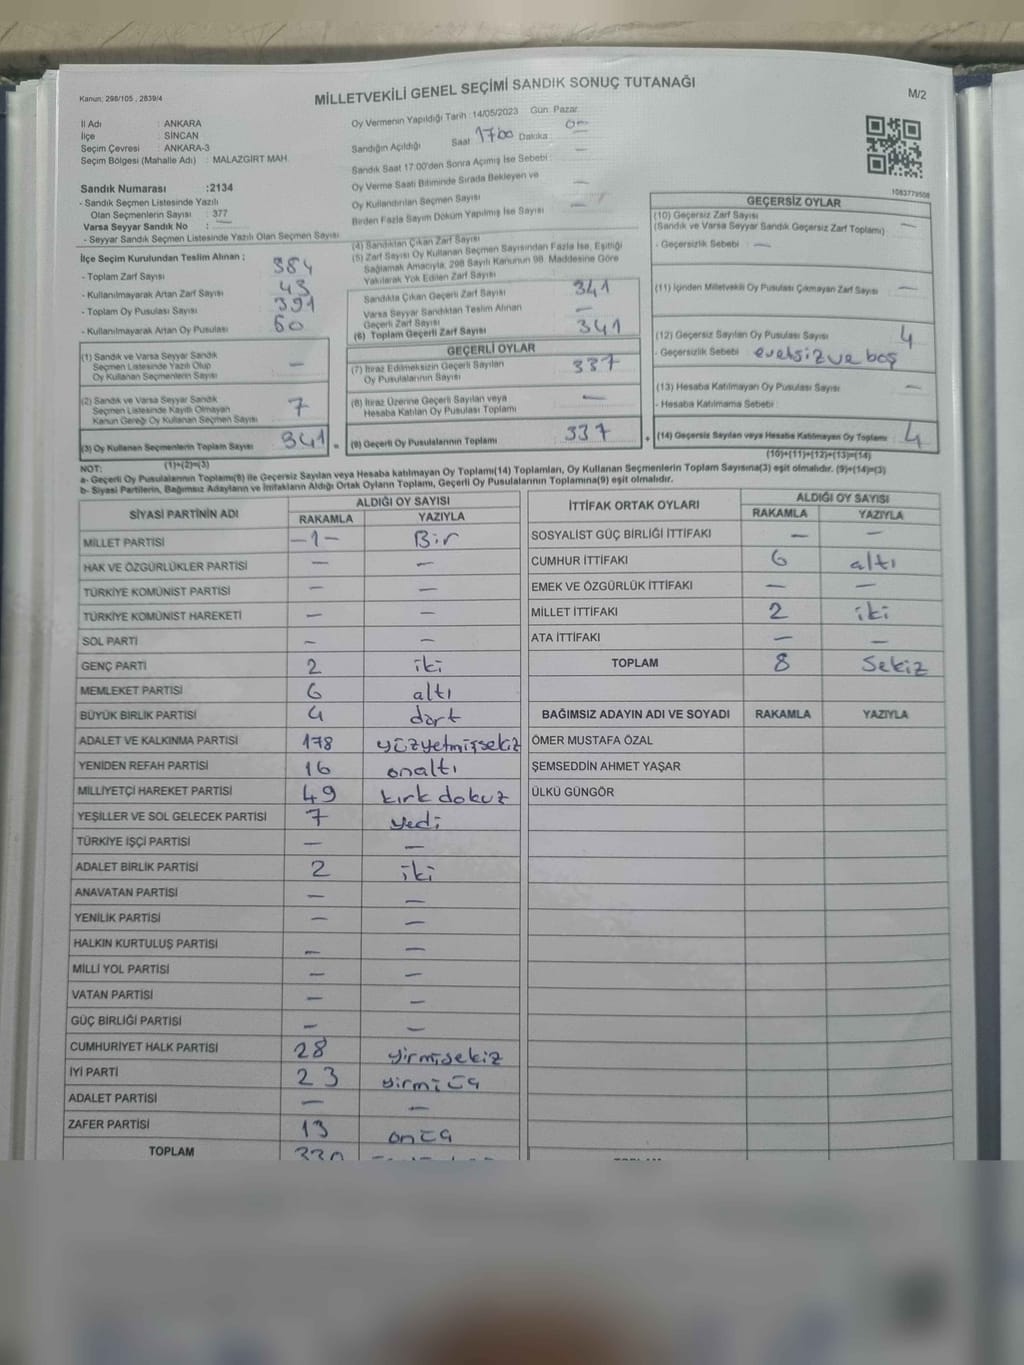 Kanun: 298/105 , 2839/4
MİLLETVEKİLİ GENEL SEÇİMİ SANDIK SONUÇ TUTANAĞI
M/2
İl Adı : ANKARA
İlçe : SİNCAN
Seçim Çevresi : ANKARA-3
Seçim Bölgesi (Mahalle Adı) : MALAZGİRT MAH.
Sandık Numarası :2134
- Sandık Seçmen Listesinde Yazılı
Olan Seçmenlerin Sayısı : 377
Varsa Seyyar Sandık No : —
- Seyyar Sandık Seçmen Listesinde Yazılı Olan Seçmen Sayısı
Oy Vermenin Yapıldığı Tarih : 14/05/2023 Gün: Pazar
Sandığın Açıldığı Saat 1700 Dakika :
Sandık Saat 17:00'den Sonra Açımış İse Sebebi : —
Oy Verme Saati Bitiminde Sırada Bekleyen ve
Oy Kullandırılan Seçmen Sayısı —
Birden Fazla Sayım Döküm Yapılmış İse Sayısı
1083779508
İlçe Seçim Kurulundan Teslim Alınan ;
- Toplam Zarf Sayısı 384
- Kullanılmayarak Artan Zarf Sayısı 43
- Toplam Oy Pusulası Sayısı 391
- Kullanılmayarak Artan Oy Pusulası 50
(1) Sandık ve Varsa Seyyar Sandık
Seçmen Listesinde Yazılı Olup
Oy Kullanan Seçmenlerin Sayısı —
(2) Sandık ve Varsa Seyyar Sandık
Seçmen Listesinde Kayıtlı Olmayan
Kanun Gereği Oy Kullanan Seçmen Sayısı 7
(3) Oy Kullanan Seçmenlerin Toplam Sayısı 341 =
(1)+(2)=(3)
(4) Sandıktan Çıkan Zarf Sayısı
(5) Zarf Sayısı Oy Kullanan Seçmen Sayısından Fazla İse, Eşitliği
Sağlamak Amacıyla, 298 Sayılı Kanunun 98. Maddesine Göre
Yakılarak Yok Edilen Zarf Sayısı
Sandıkta Çıkan Geçerli Zarf Sayısı 341
Varsa Seyyar Sandıktan Teslim Alınan
Geçerli Zarf Sayısı —
(6) Toplam Geçerli Zarf Sayısı 341
GEÇERLİ OYLAR
(7) İtiraz Edilmeksizin Geçerli Sayılan
Oy Pusulalarının Sayısı 337
(8) İtiraz Üzerine Geçerli Sayılan veya
Hesaba Katılan Oy Pusulası Toplamı —
(9) Geçerli Oy Pusulalarının Toplamı 337 +
GEÇERSİZ OYLAR
(10) Geçersiz Zarf Sayısı
(Sandık ve Varsa Seyyar Sandık Geçersiz Zarf Toplamı) —
- Geçersizlik Sebebi : —
(11) İçinden Milletvekili Oy Pusulası Çıkmayan Zarf Sayısı —
(12) Geçersiz Sayılan Oy Pusulası Sayısı 4
- Geçersizlik Sebebi evetsiz ve boş
(13) Hesaba Katılmayan Oy Pusulası Sayısı —
- Hesaba Katılmama Sebebi :
(14) Geçersiz Sayılan veya Hesaba Katılmayan Oy Toplamı 4
(10)+(11)+(12)+(13)=(14)
NOT:
a- Geçerli Oy Pusulalarının Toplamı(9) ile Geçersiz Sayılan veya Hesaba katılmayan Oy Toplamı(14) Toplamları, Oy Kullanan Seçmenlerin Toplam Sayısına(3) eşit olmalıdır. (9)+(14)=(3)
b- Siyasi Partilerin, Bağımsız Adayların ve İttifakların Aldığı Ortak Oyların Toplamı, Geçerli Oy Pusulalarının Toplamına(9) eşit olmalıdır.
SİYASİ PARTİNİN ADI ALDIĞI OY SAYISI
RAKAMLA YAZIYLA
MİLLET PARTİSİ —1— Bir
HAK VE ÖZGÜRLÜKLER PARTİSİ — —
TÜRKİYE KOMÜNİST PARTİSİ — —
TÜRKİYE KOMÜNİST HAREKETİ — —
SOL PARTİ — —
GENÇ PARTİ 2 iki
MEMLEKET PARTİSİ 6 altı
BÜYÜK BİRLİK PARTİSİ 4 dört
ADALET VE KALKINMA PARTİSİ 178 yüzyetmişsekiz
YENİDEN REFAH PARTİSİ 16 onaltı
MİLLİYETÇİ HAREKET PARTİSİ 49 kırk dokuz
YEŞİLLER VE SOL GELECEK PARTİSİ 7 yedi
TÜRKİYE İŞÇİ PARTİSİ — —
ADALET BİRLİK PARTİSİ 2 iki
ANAVATAN PARTİSİ — —
YENİLİK PARTİSİ — —
HALKIN KURTULUŞ PARTİSİ — —
MİLLİ YOL PARTİSİ — —
VATAN PARTİSİ — —
GÜÇ BİRLİĞİ PARTİSİ — —
CUMHURİYET HALK PARTİSİ 28 yirmisekiz
İYİ PARTİ 23 yirmi üç
ADALET PARTİSİ — —
ZAFER PARTİSİ 13 onüç
TOPLAM
İTTİFAK ORTAK OYLARI ALDIĞI OY SAYISI
RAKAMLA YAZIYLA
SOSYALİST GÜÇ BİRLİĞİ İTTİFAKI — —
CUMHUR İTTİFAKI 6 altı
EMEK VE ÖZGÜRLÜK İTTİFAKI — —
MİLLET İTTİFAKI 2 iki
ATA İTTİFAKI — —
TOPLAM 8 Sekiz
BAĞIMSIZ ADAYIN ADI VE SOYADI RAKAMLA YAZIYLA
ÖMER MUSTAFA ÖZAL
ŞEMSEDDİN AHMET YAŞAR
ÜLKÜ GÜNGÖR